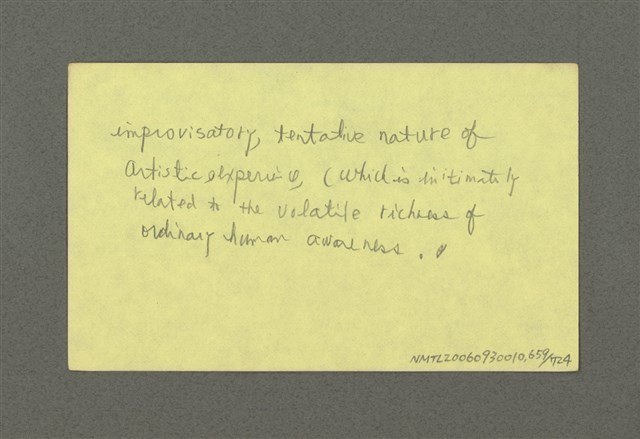 improvisatory, tentative nature of
artistic experience, (which is intimately
related to the volatile richness of
ordinary human awareness.
NMTL20060930010,659/724